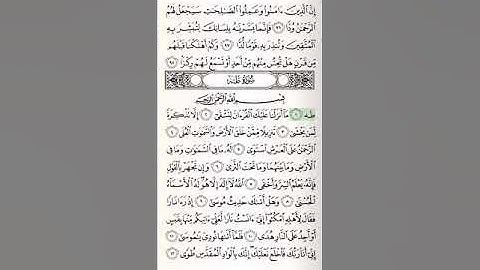 إِنَّ الَّذِينَ ءَامَنُوا وَعَمِلُوا الصَّالِحَاتِ سَيَجْعَلُ لَهُمُ
الرَّحْمَٰنُ وُدًّا ٩٦ فَإِنَّمَا يَسَّرْنَاهُ بِلِسَانِكَ لِتُبَشِّرَ بِهِ
الْمُتَّقِينَ وَتُنذِرَ بِهِ قَوْمًا لُّدًّا ٩٧ وَكَمْ أَهْلَكْنَا قَبْلَهُم
مِّن قَرْنٍ هَلْ تُحِسُّ مِنْهُم مِّنْ أَحَدٍ أَوْ تَسْمَعُ لَهُمْ رِكْزًا ٩٨
سُورَةُ طه
بِسْمِ اللَّهِ الرَّحْمَٰنِ الرَّحِيمِ
طه ١ مَا أَنزَلْنَا عَلَيْكَ الْقُرْءَانَ لِتَشْقَىٰ ٢ إِلَّا تَذْكِرَةً
لِّمَن يَخْشَىٰ ٣ تَنزِيلًا مِّمَّنْ خَلَقَ الْأَرْضَ وَالسَّمَاوَاتِ الْعُلَى ٤
الرَّحْمَٰنُ عَلَى الْعَرْشِ اسْتَوَىٰ ٥ لَهُ مَا فِي السَّمَاوَاتِ وَمَا فِي
الْأَرْضِ وَمَا بَيْنَهُمَا وَمَا تَحْتَ الثَّرَىٰ ٦ وَإِن تَجْهَرْ بِالْقَوْلِ
فَإِنَّهُ يَعْلَمُ السِّرَّ وَأَخْفَى ٧ اللَّهُ لَا إِلَٰهَ إِلَّا هُوَ لَهُ الْأَسْمَاءُ
الْحُسْنَىٰ ٨ وَهَلْ أَتَاكَ حَدِيثُ مُوسَىٰ ٩ إِذْ رَءَا نَارًا
فَقَالَ لِأَهْلِهِ امْكُثُوا إِنِّي ءَانَسْتُ نَارًا لَّعَلِّي ءَاتِيكُم مِّنْهَا بِقَبَسٍ
أَوْ أَجِدُ عَلَى النَّارِ هُدًى ١٠ فَلَمَّا أَتَاهَا نُودِيَ يَا مُوسَىٰ ١١
إِنِّي أَنَا رَبُّكَ فَاخْلَعْ نَعْلَيْكَ إِنَّكَ بِالْوَادِ الْمُقَدَّسِ طُوًى ١٢